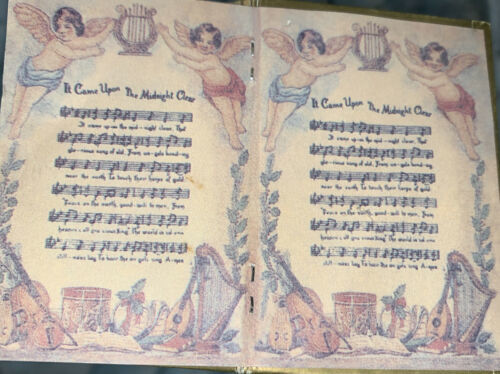 It Came Upon The Midnight Clear
It came up-on the mid-night clear, That
glo-rious song of old. From an-gels bend-ing
near the earth To touch their harps of gold
Peace on the earth, good-will to men, From
heaven's all
The world in
still-ness lay To hear the an-gels sing A-men
It Came Upon The Midnight Clear
It came up-on the mid-night clear, That
glo-rious song of old. From an-gels bend-ing
near the earth To touch their harps of gold
Peace on the earth, good-will to men, From
heaven's all
The world in
still-ness lay To hear the an-gels sing A-men